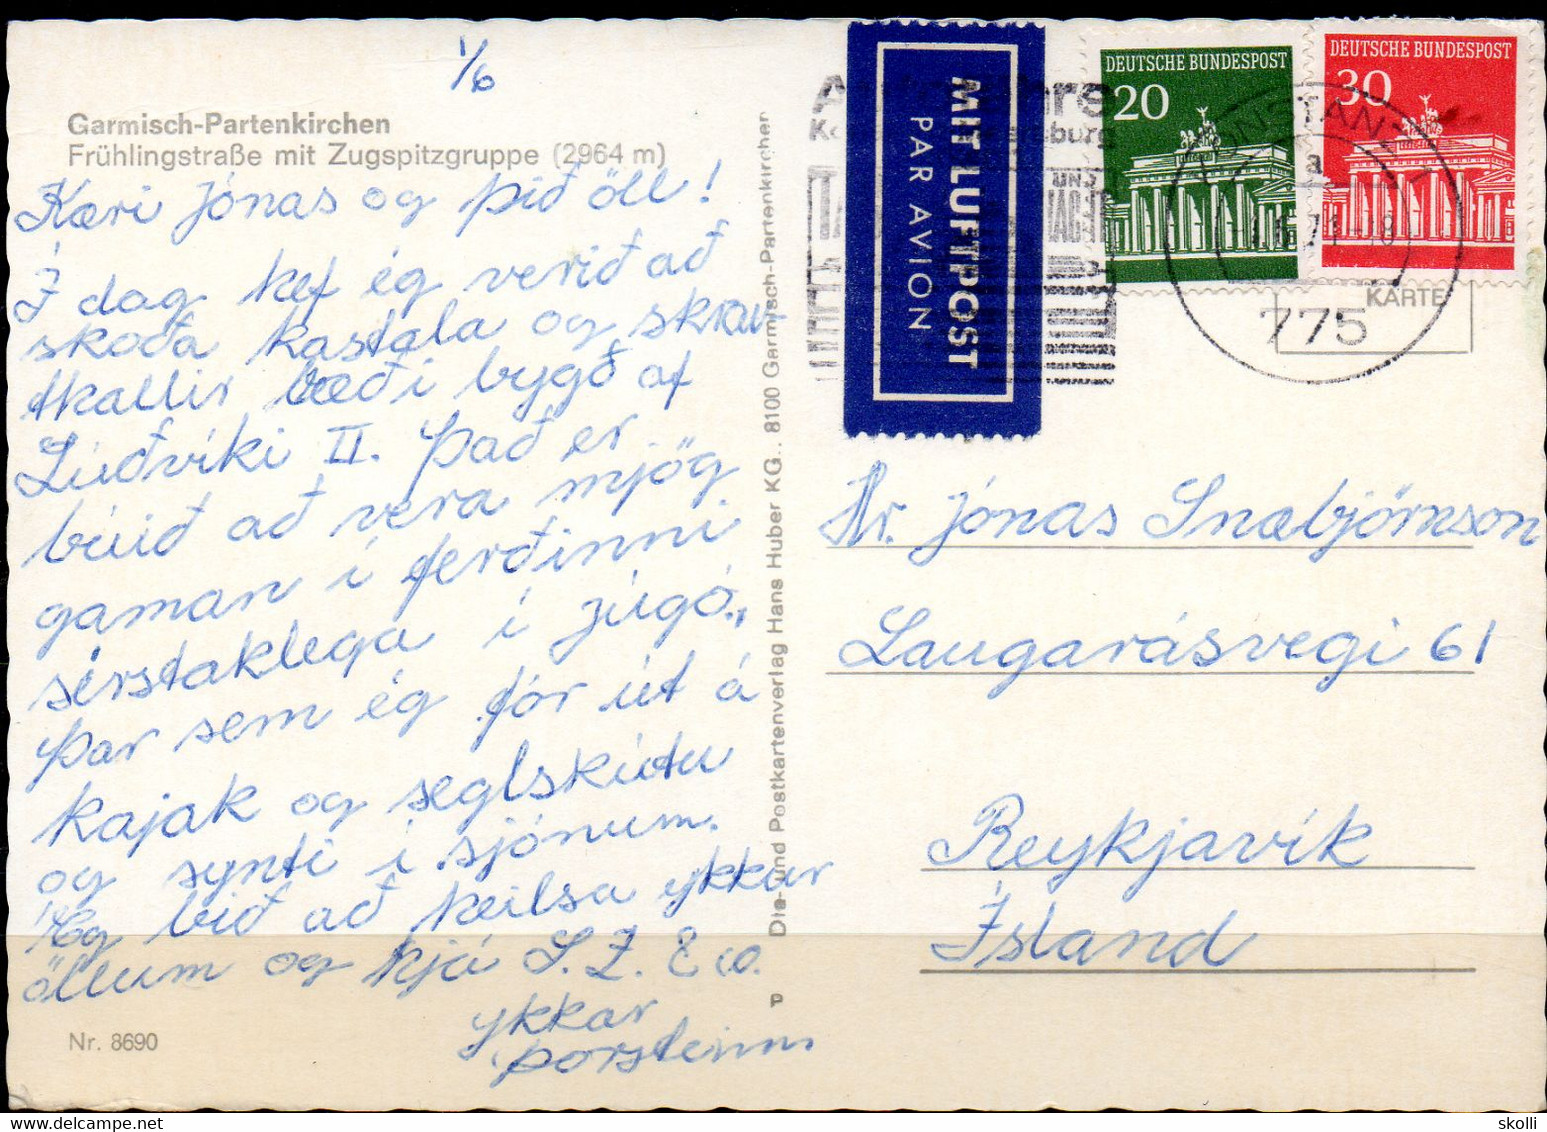 1/6
Garmisch-Partenkirchen
Frühlingstraße mit Zugspitzgruppe (2964 m)
Kæri Jónas og þið öll!
Í dag hef ég verið að
skoða kastala og skraut-
hallir bæði bygð af
Lúðvíki II. Það er
búið að vera mjög
gaman í ferðinni
sérstaklega í júgó.,
þar sem ég fór út á
kajak og seglskútu
og synti í sjónum.
Ég bið að heilsa ykkar
öllum og hjá S. Z. E co.
ykkar
þorsteinn
Nr. 8690
Die- und Postkartenverlag Hans Huber KG., 8100 Garmisch-Partenkirchen
MIT LUFTPOST
PAR AVION
DEUTSCHE BUNDESPOST
20
DEUTSCHE BUNDESPOST
30
KONSTANZ 1
a
-1.6.71-18
775
KARTE
Hr. Jónas Snæbjörnson
Laugarásvegi 61
Reykjavík
Ísland
skolli